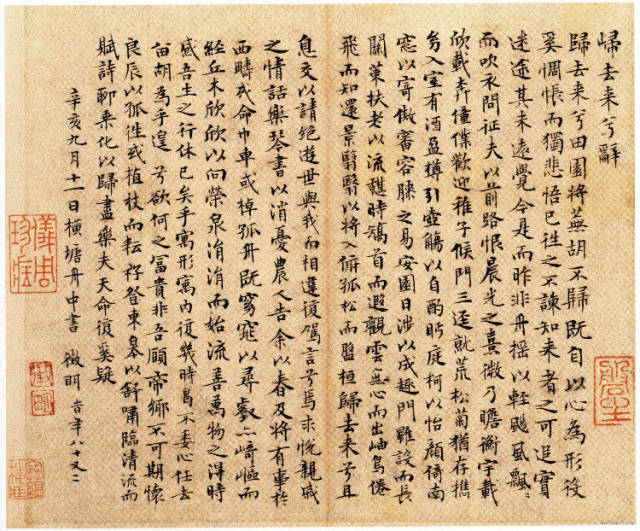 歸去来兮辭
歸去来兮田園將蕪胡不歸既自以心為形役
奚惆悵而獨悲悟已往之不諫知来者之可追實
迷途其未遠覺今是而昨非舟摇以輕颺風飄〻
而吹衣問征夫以前路恨晨光之熹微乃瞻衡宇載
欣載奔僮僕歡迎稚子候門三逕就荒松菊猶存携
幼入室有酒盈樽引壺觴以自酌眄庭柯以怡顔倚南
窓以寄傲審容膝之易安園日涉以成趣門雖設而長
關策扶老以流憩時矯首而遐觀雲無心而出岫鳥倦
飛而知還景翳翳以將入撫孤松而盤桓歸去来兮且
息交以請絶遊世與我而相違復駕言兮焉求悅親戚
之情話樂琴書以消憂農人告余以春及將有事於
西疇或命巾車或棹孤舟既窈窕以尋壑亦崎嶇而
經丘木欣欣以向榮泉涓涓而始流善萬物之得時
感吾生之行休已矣乎寓形寓内復幾時曷不委心任去
留胡為乎遑兮欲何之富貴非吾願帝鄉不可期懷
良辰以孤往或植杖而耘耔登東皋以舒嘯臨清流而
賦詩聊乘化以歸盡樂夫天命復奚疑
辛亥九月十一日橫塘舟中書 徵明 年八十又二